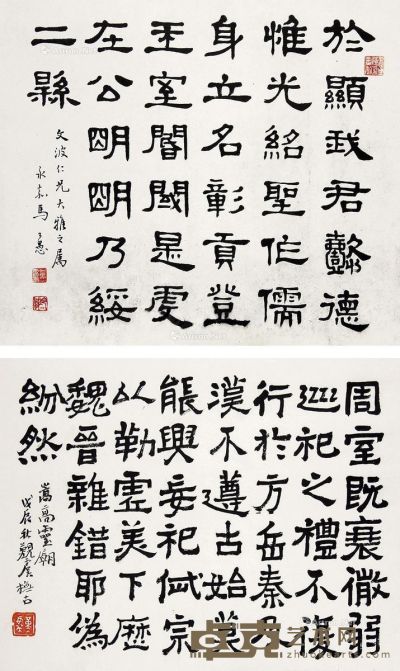 於顯我君懿德
惟光紹聖作儒
身立名彰貢登
王室閽閣是虔
在公明明乃綏
二縣
文波仁兄大雅之屬
永嘉馬公愚
周室既衰微弱
巡祀之禮不復
行於方岳秦及
漢不遵古始莫
能興妄祀岱宗
以勒虛美下歷
魏晉雜錯耶偽
紛然
嵩高靈廟
戊辰秋
卓克艺术网